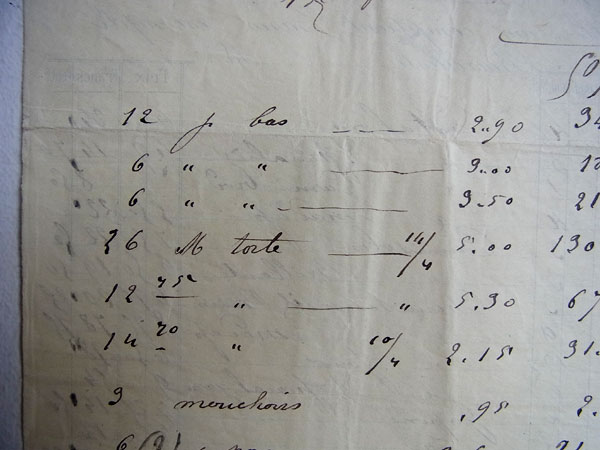 12 p bas --- 2..90 34
6 " " — 3..00 18
6 " " — 3.50 21
26 M torte — 14/4 5.00 130
12 75 " — " 5.30 67
14 70 " 10/4 2.15 31.
3 mouchoirs .95 2.